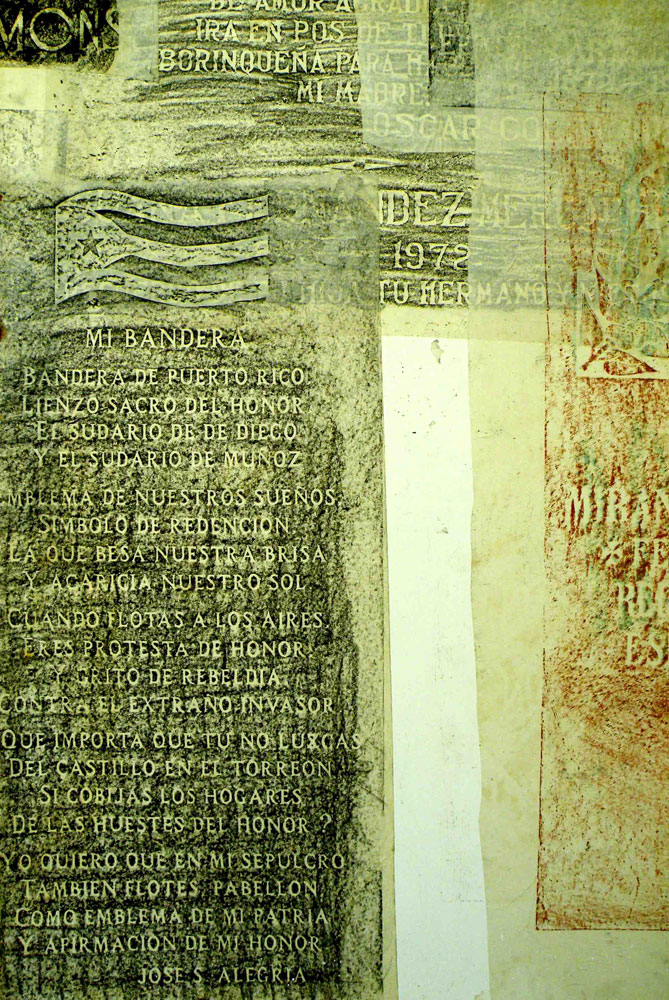 MONS
DE AMOR AGRAD
IRA EN POS DE TI
BORINQUEÑA PARA
MI MADRE.
OSCAR CO
NDEZ MER
1972
HIJA TU HERMANO Y
MI BANDERA
BANDERA DE PUERTO RICO
LIENZO SACRO DEL HONOR
EL SUDARIO DE DE DIEGO
Y EL SUDARIO DE MUÑOZ
EMBLEMA DE NUESTROS SUEÑOS
SIMBOLO DE REDENCION
LA QUE BESA NUESTRA BRISA
Y ACARICIA NUESTRO SOL
CUANDO FLOTAS A LOS AIRES
ERES PROTESTA DE HONOR
Y GRITO DE REBELDIA
CONTRA EL EXTRAÑO INVASOR
QUE IMPORTA QUE TU NO LUZCAS
DEL CASTILLO EN EL TORREON
SI COBIJAS LOS HOGARES
DE LAS HUESTES DEL HONOR ?
YO QUIERO QUE EN MI SEPULCRO
TAMBIEN FLOTES, PABELLON
COMO EMBLEMA DE MI PATRIA
Y AFIRMACION DE MI HONOR
JOSE S. ALEGRIA
MIRAN
FE
RE
ES